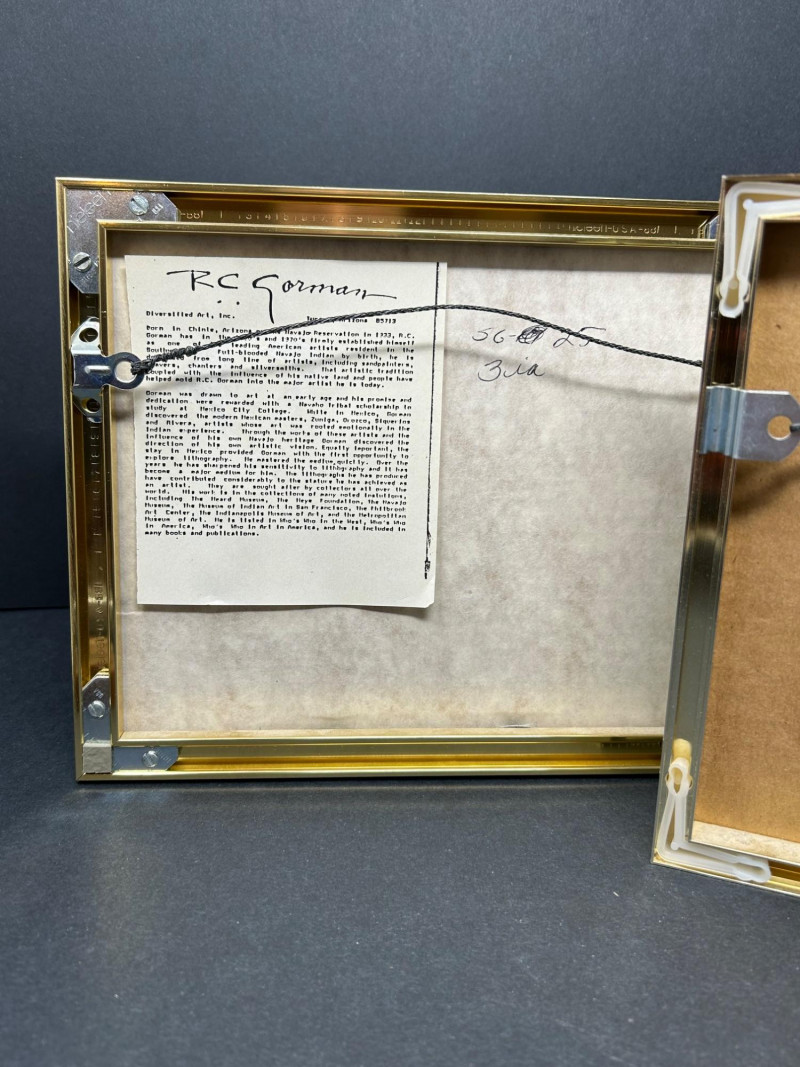 nielsen
-88!
nielsen-USA-88!
R.C. Gorman
Diversified Art, Inc.
Tucson, Arizona 85713
Born in Chinle, Arizona Navajo Reservation in 1933, R.C.
Gorman has in the and 1970's firmly established himself
as one of leading American artists resident in the
Southwest. Full-blooded Navajo Indian by birth, he is
from long line of artists, including sandpainters,
weavers, chanters and silversmiths. That artistic tradition
coupled with the influence of his native land and people have
helped mold R.C. Gorman into the major artist he is today.
Gorman was drawn to art at an early age and his promise and
dedication were rewarded with a Navaho tribal scholarship to
study at Mexico City College. While in Mexico, Gorman
discovered the modern Mexican masters, Zuniga, Orozco, Siquerios
and Rivera, artists whose art was rooted emotionally in the
Indian experience. Through the works of these artists and the
influence of his own Navajo heritage Gorman discovered the
direction of his own artistic vision. Equally important, the
stay in Mexico provided Gorman with the first opportunity to
explore lithography. He mastered the medium quickly. Over the
years he has sharpened his sensitivity to lithography and it has
become a major medium for him. The lithographs he has produced
have contributed considerably to the stature he has achieved as
an artist. They are sought after by collectors all over the
world. His work is in the collections of many noted
including The Heard Museum, The Heye Foundation, the Navajo
Museum, The Museum of Indian Art in San Francisco, the Philbrook
Art Center, the Indianapolis Museum of Art, and the Metropolitan
Museum of Art. He is listed in Who's Who in the West, Who's Who
in America, Who's Who in Art in America, and he is included in
many books and publications.
SG- 25
Zia